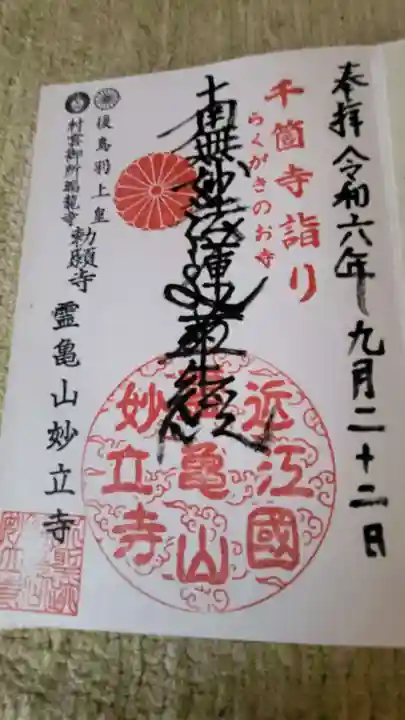 奉拝 令和六年九月二十二日
千箇寺詣り
らくがきのお寺
南無妙法蓮華経
近江國
霊亀山
妙立寺
後鳥羽上皇
村雲御所瑞龍寺
勅願寺
霊亀山妙立寺